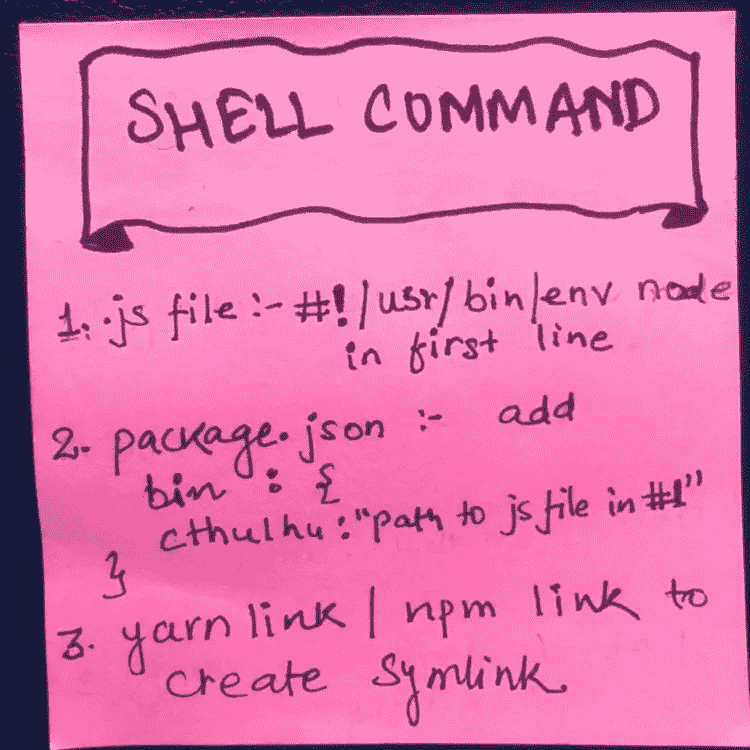 SHELL COMMAND
1. .js file :- #!/usr/bin/env node
in first line
2. package.json :- add
bin : {
cthulhu : "path to js file in #1"
}
3. yarn link / npm link to
create symlink